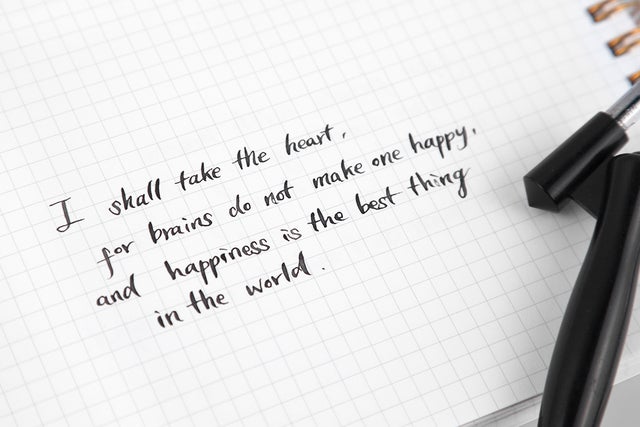 I shall take the heart,
for brains do not make one happy,
and happiness is the best thing
in the world.